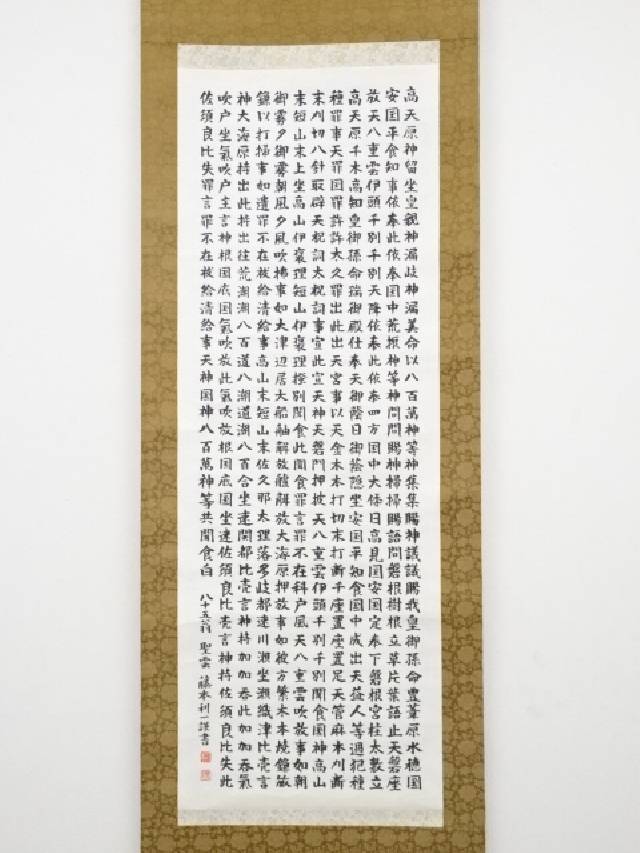 高天原神留坐皇親神漏岐神漏美命以八百萬神等神集集賜神議議賜我皇御孫命豊葦原水穂国
安国平食知事依奉此依奉国中荒振神等神問問賜神掃掃賜語問磐根樹根立草片葉語止天磐座
放天八重雲伊頭千別千別天降依奉此依奉四方国中大倭日高見国安国定奉下磐根宮柱太敷立
高天原千木高知皇御孫命瑞御殿仕奉天御蔭日御蔭隠坐安国平知食国中成出天益人等過犯種
種罪事天罪国罪許許太久罪出此出天宮事以天金木本打切末打断千座置座置足天菅麻本刈断
末刈切八針取辟天祝詞太祝詞事宣此宣天神天磐門押披天八重雲伊頭千別千別聞食国神高山
末短山末上坐高山伊褒理短山伊褒理撥別聞食此聞食罪言罪不在科戸風天八重雲吹放事如朝
御霧夕御霧朝風夕風吹拂事如大津辺居大船舳解放艫解放大海原押放事如彼方繁木本焼鎌敏
鎌以打掃事如遺罪不在祓給清給事高山末短山末佐久那太理落多岐都速川瀬坐瀬織津比売言
神大海原持出此持出往荒潮潮八百道八潮道潮八百合坐速開都比売言神持加加呑此加加呑氣
吹戸坐氣吹戸主言神根国底国氣吹放此氣吹放根国底国坐速佐須良比売言神持佐須良比失此
佐須良比失罪言罪不在祓給清給事天神国神八百萬神等共聞食白
八十五翁 聖雲 藤本利一謹書